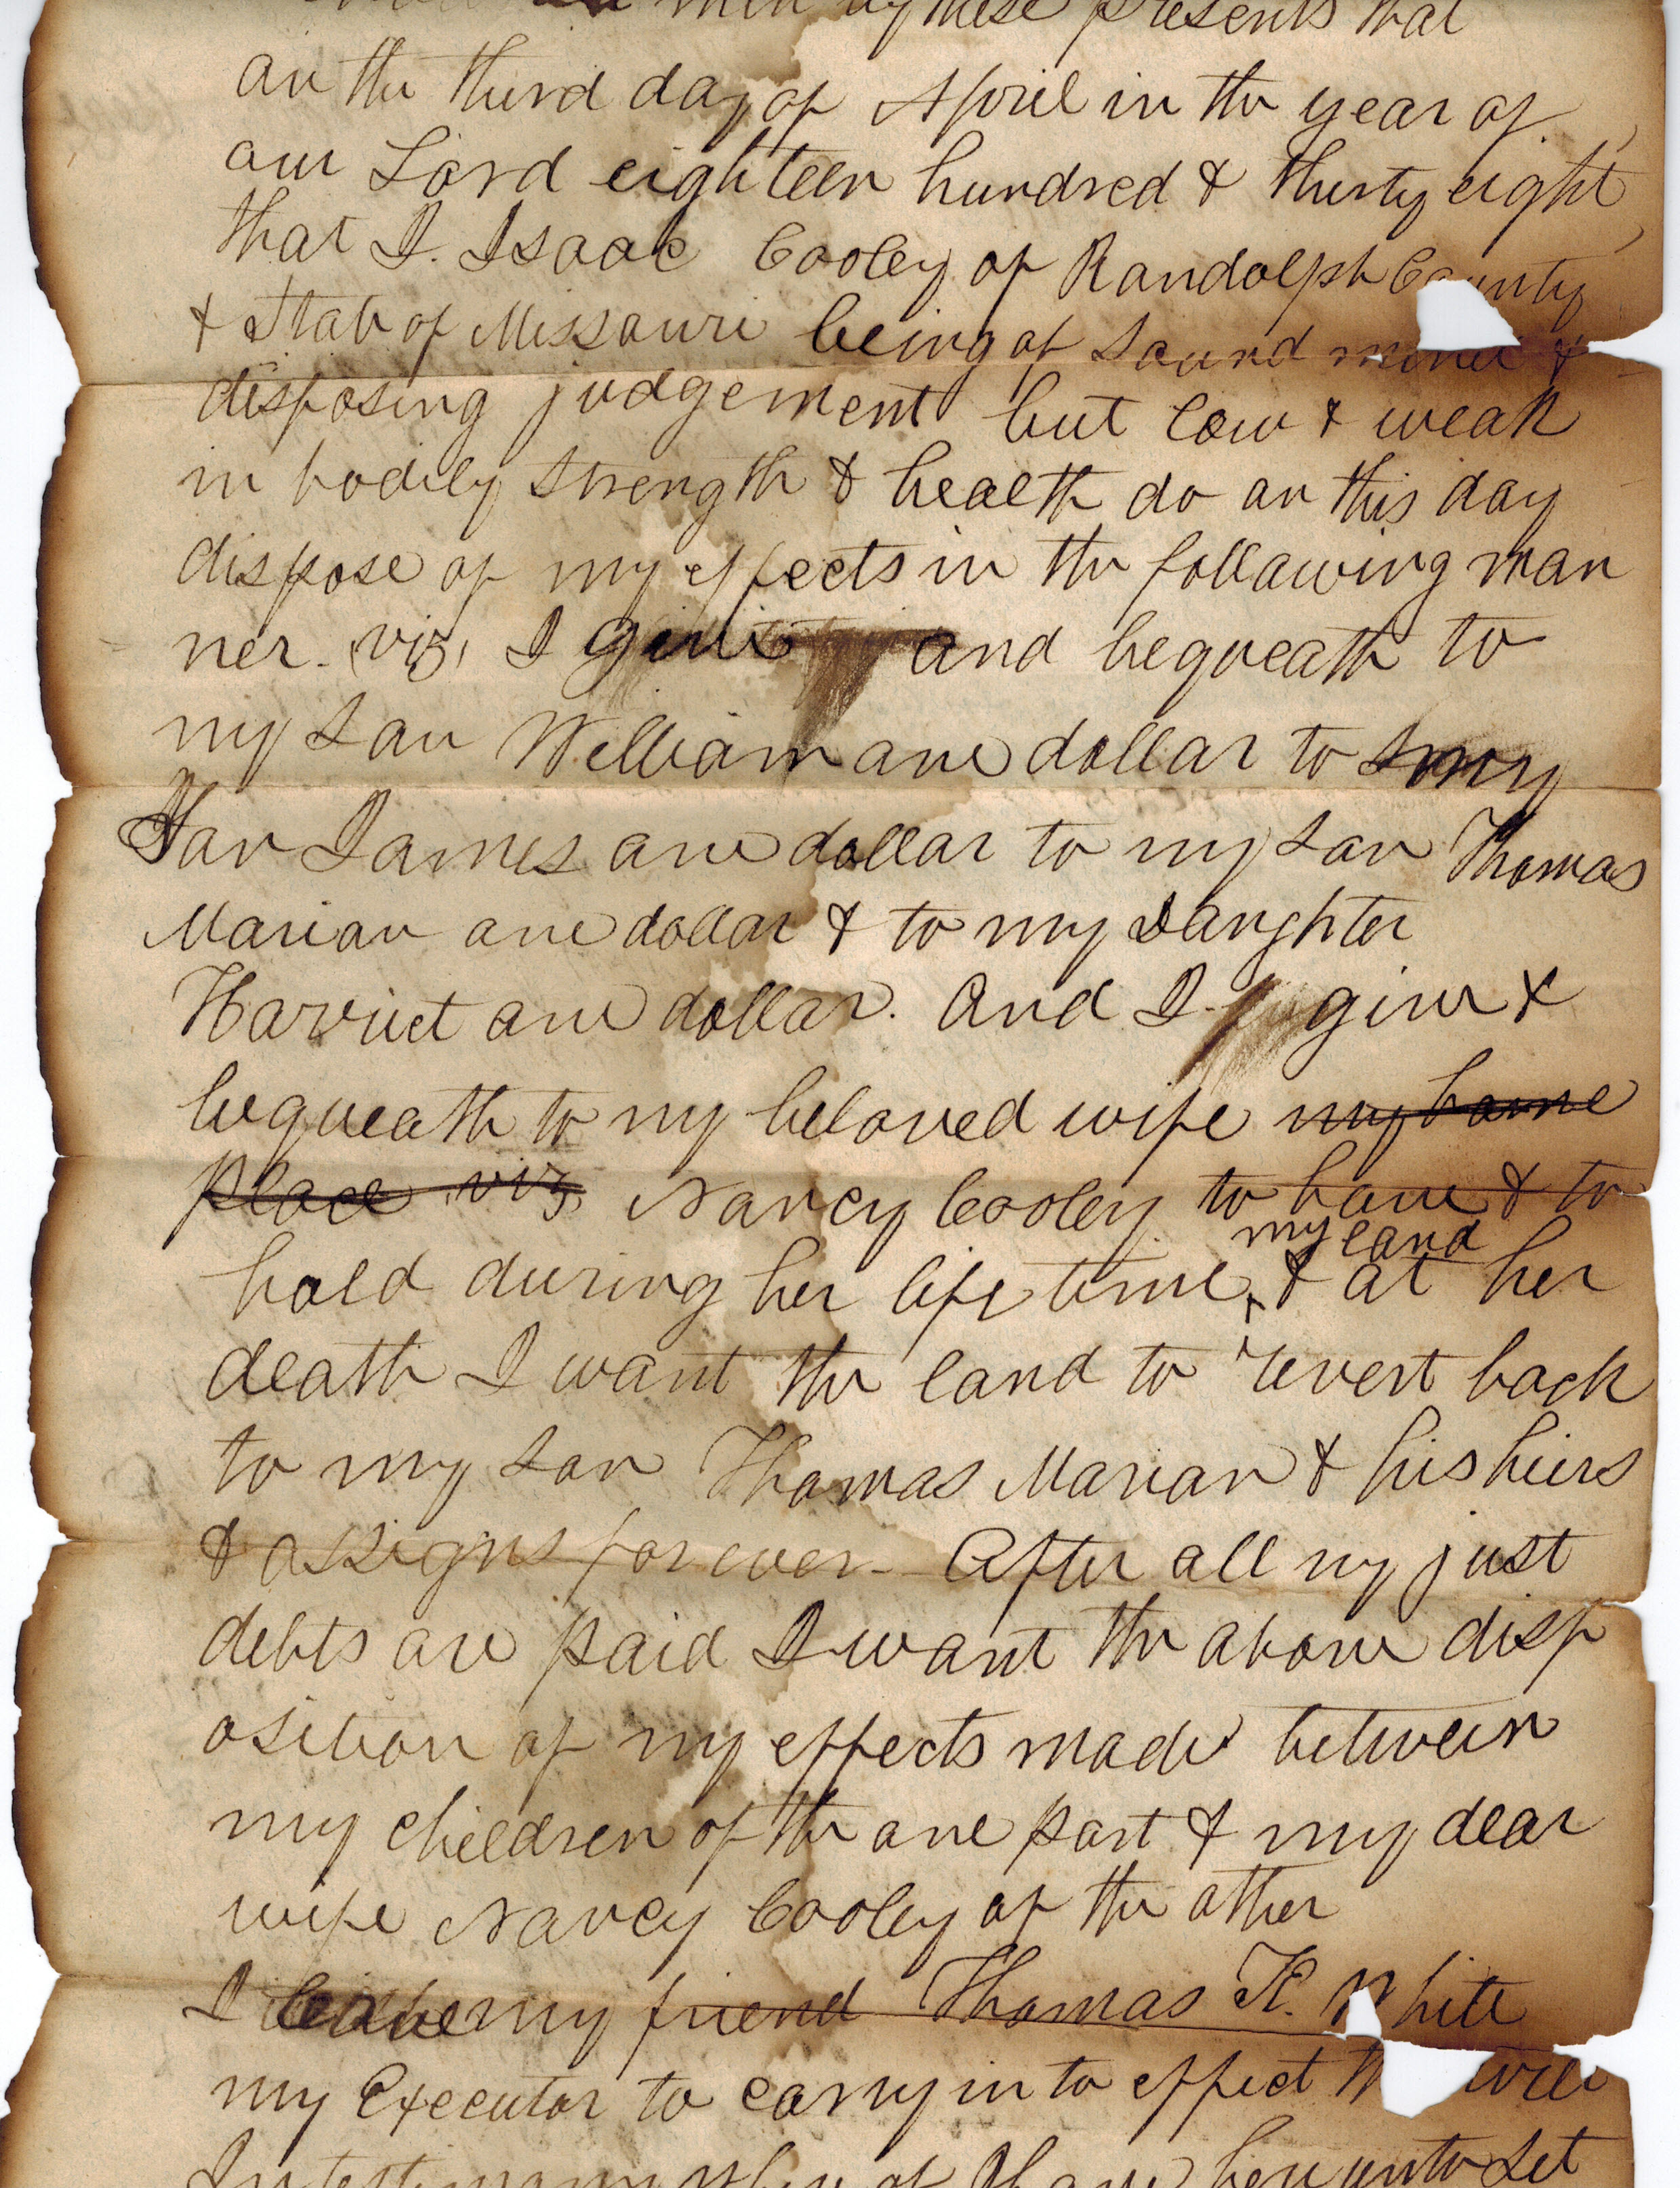 men by these presents that
on the third day of April in the year of
our Lord eighteen hundred & thirty eight
that I. Isaac Cooley of Randolph County
& State of Missouri being of sound mind &
disposing judgement but low & weak
in bodily strength & health do on this day
dispose of my effects in the following man
ner. viz, I give and bequeath to
my son William one dollar to my
Son James one dollar to my son Thomas
Marion one dollar & to my Daughter
Harriet one dollar. And I give &
bequeath to my beloved wife my home
place viz Nancy Cooley to have & to
my land
hold during her life time, & at her
death I want the land to revert back
to my son Thomas Marion & his heirs
& assigns forever - After all my just
debts are paid I want the above disp
osition of my effects made between
my children of the one part & my dear
wife Nancy Cooley of the other
I leave my friend Thomas K. White
my Executor to carry in to effect will
In testimony Where of I have here unto set